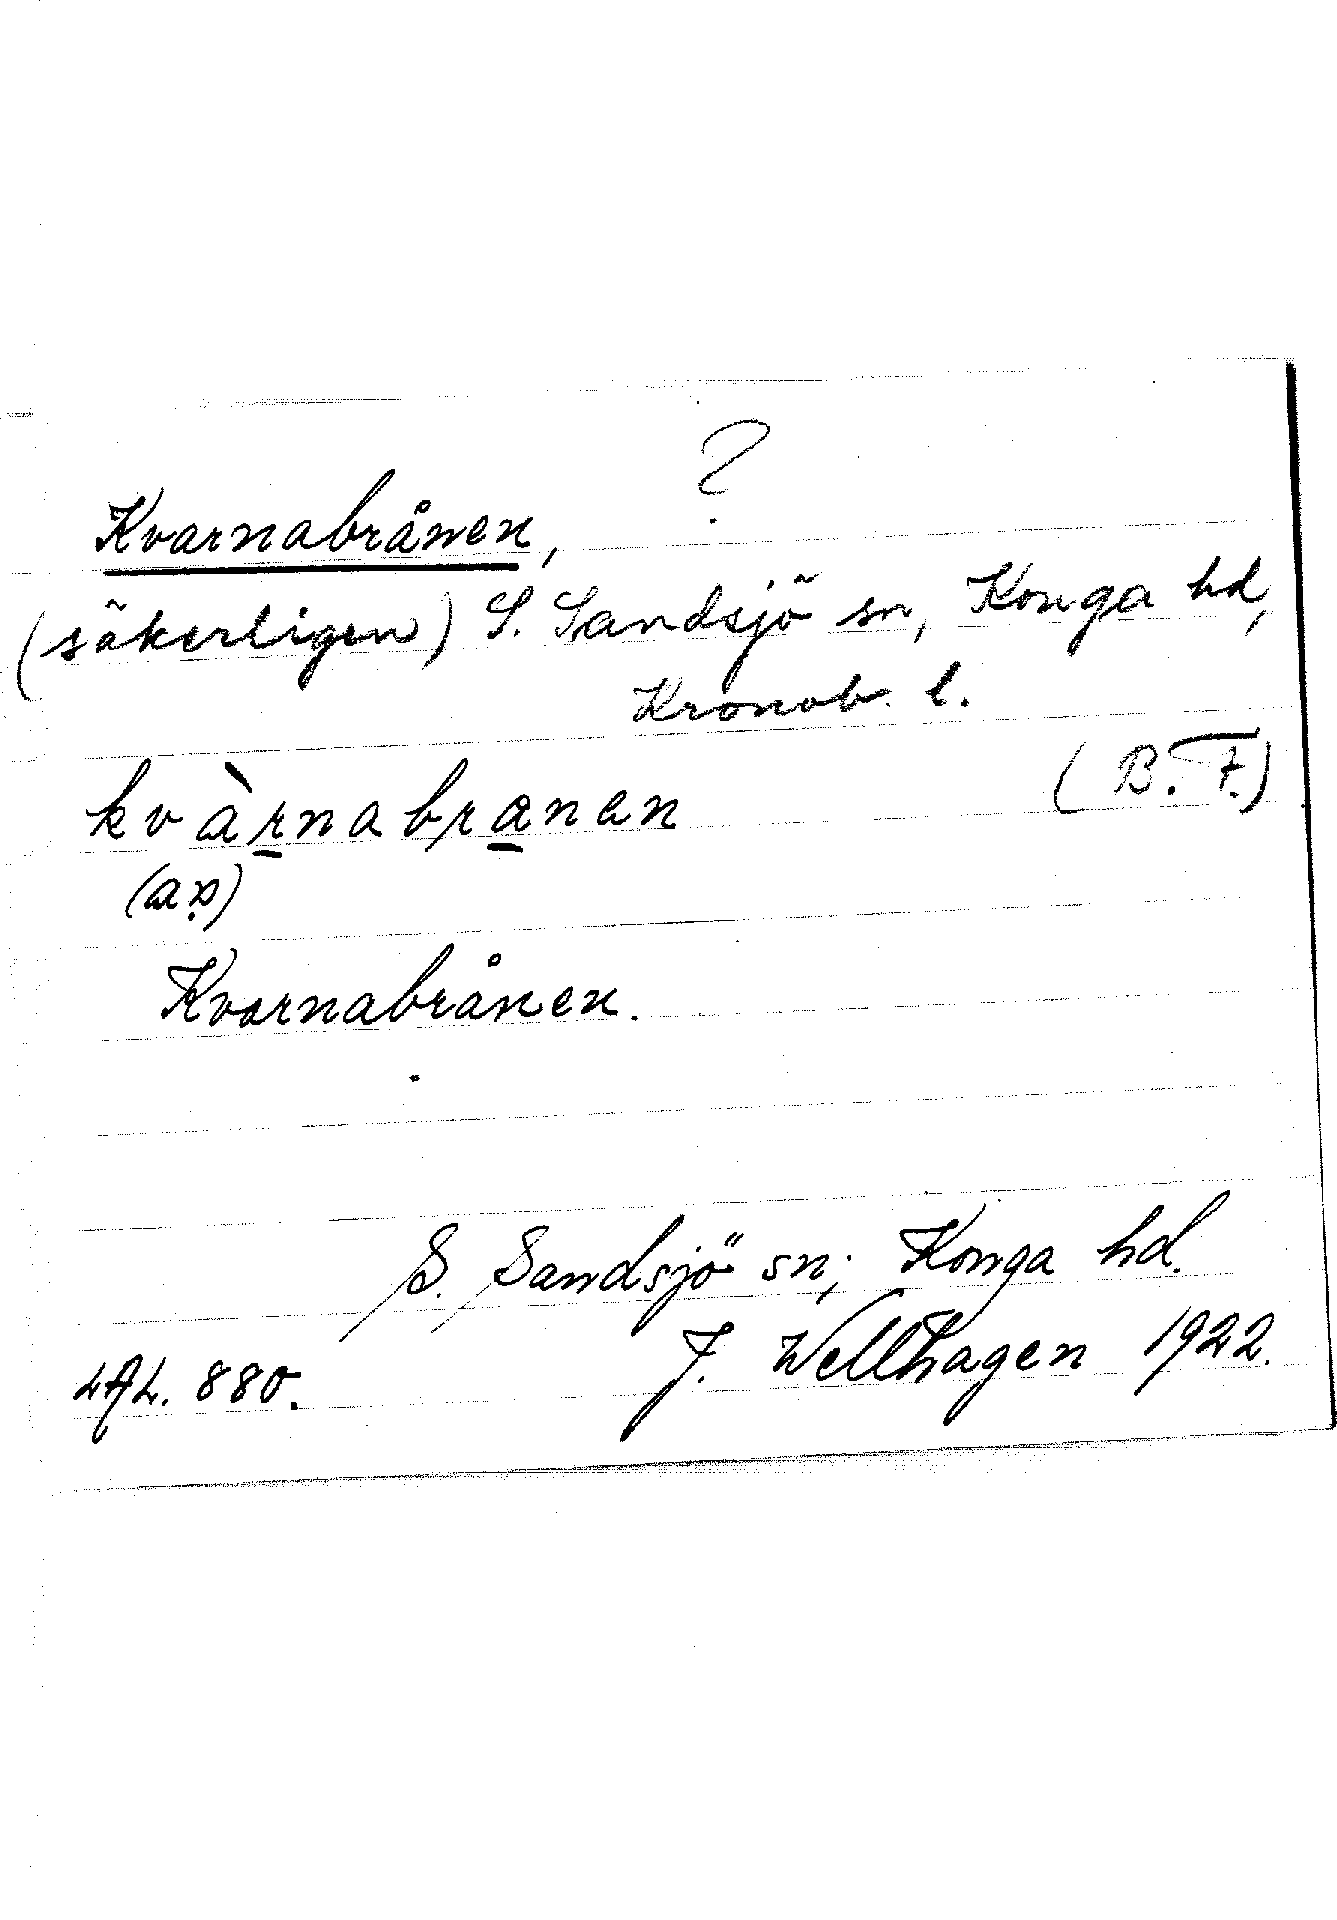 ?
Kvarnabrånen,
(säkerligen) S. Sandsjö sn, Konga hd,
Kronob. l.
(B. F.)
kvàrnabranen
(aṛ)
Kvarnabrånen.
S. Sandsjö sn; Konga hd.
J. Wellhagen 1922.
LAL. 880.